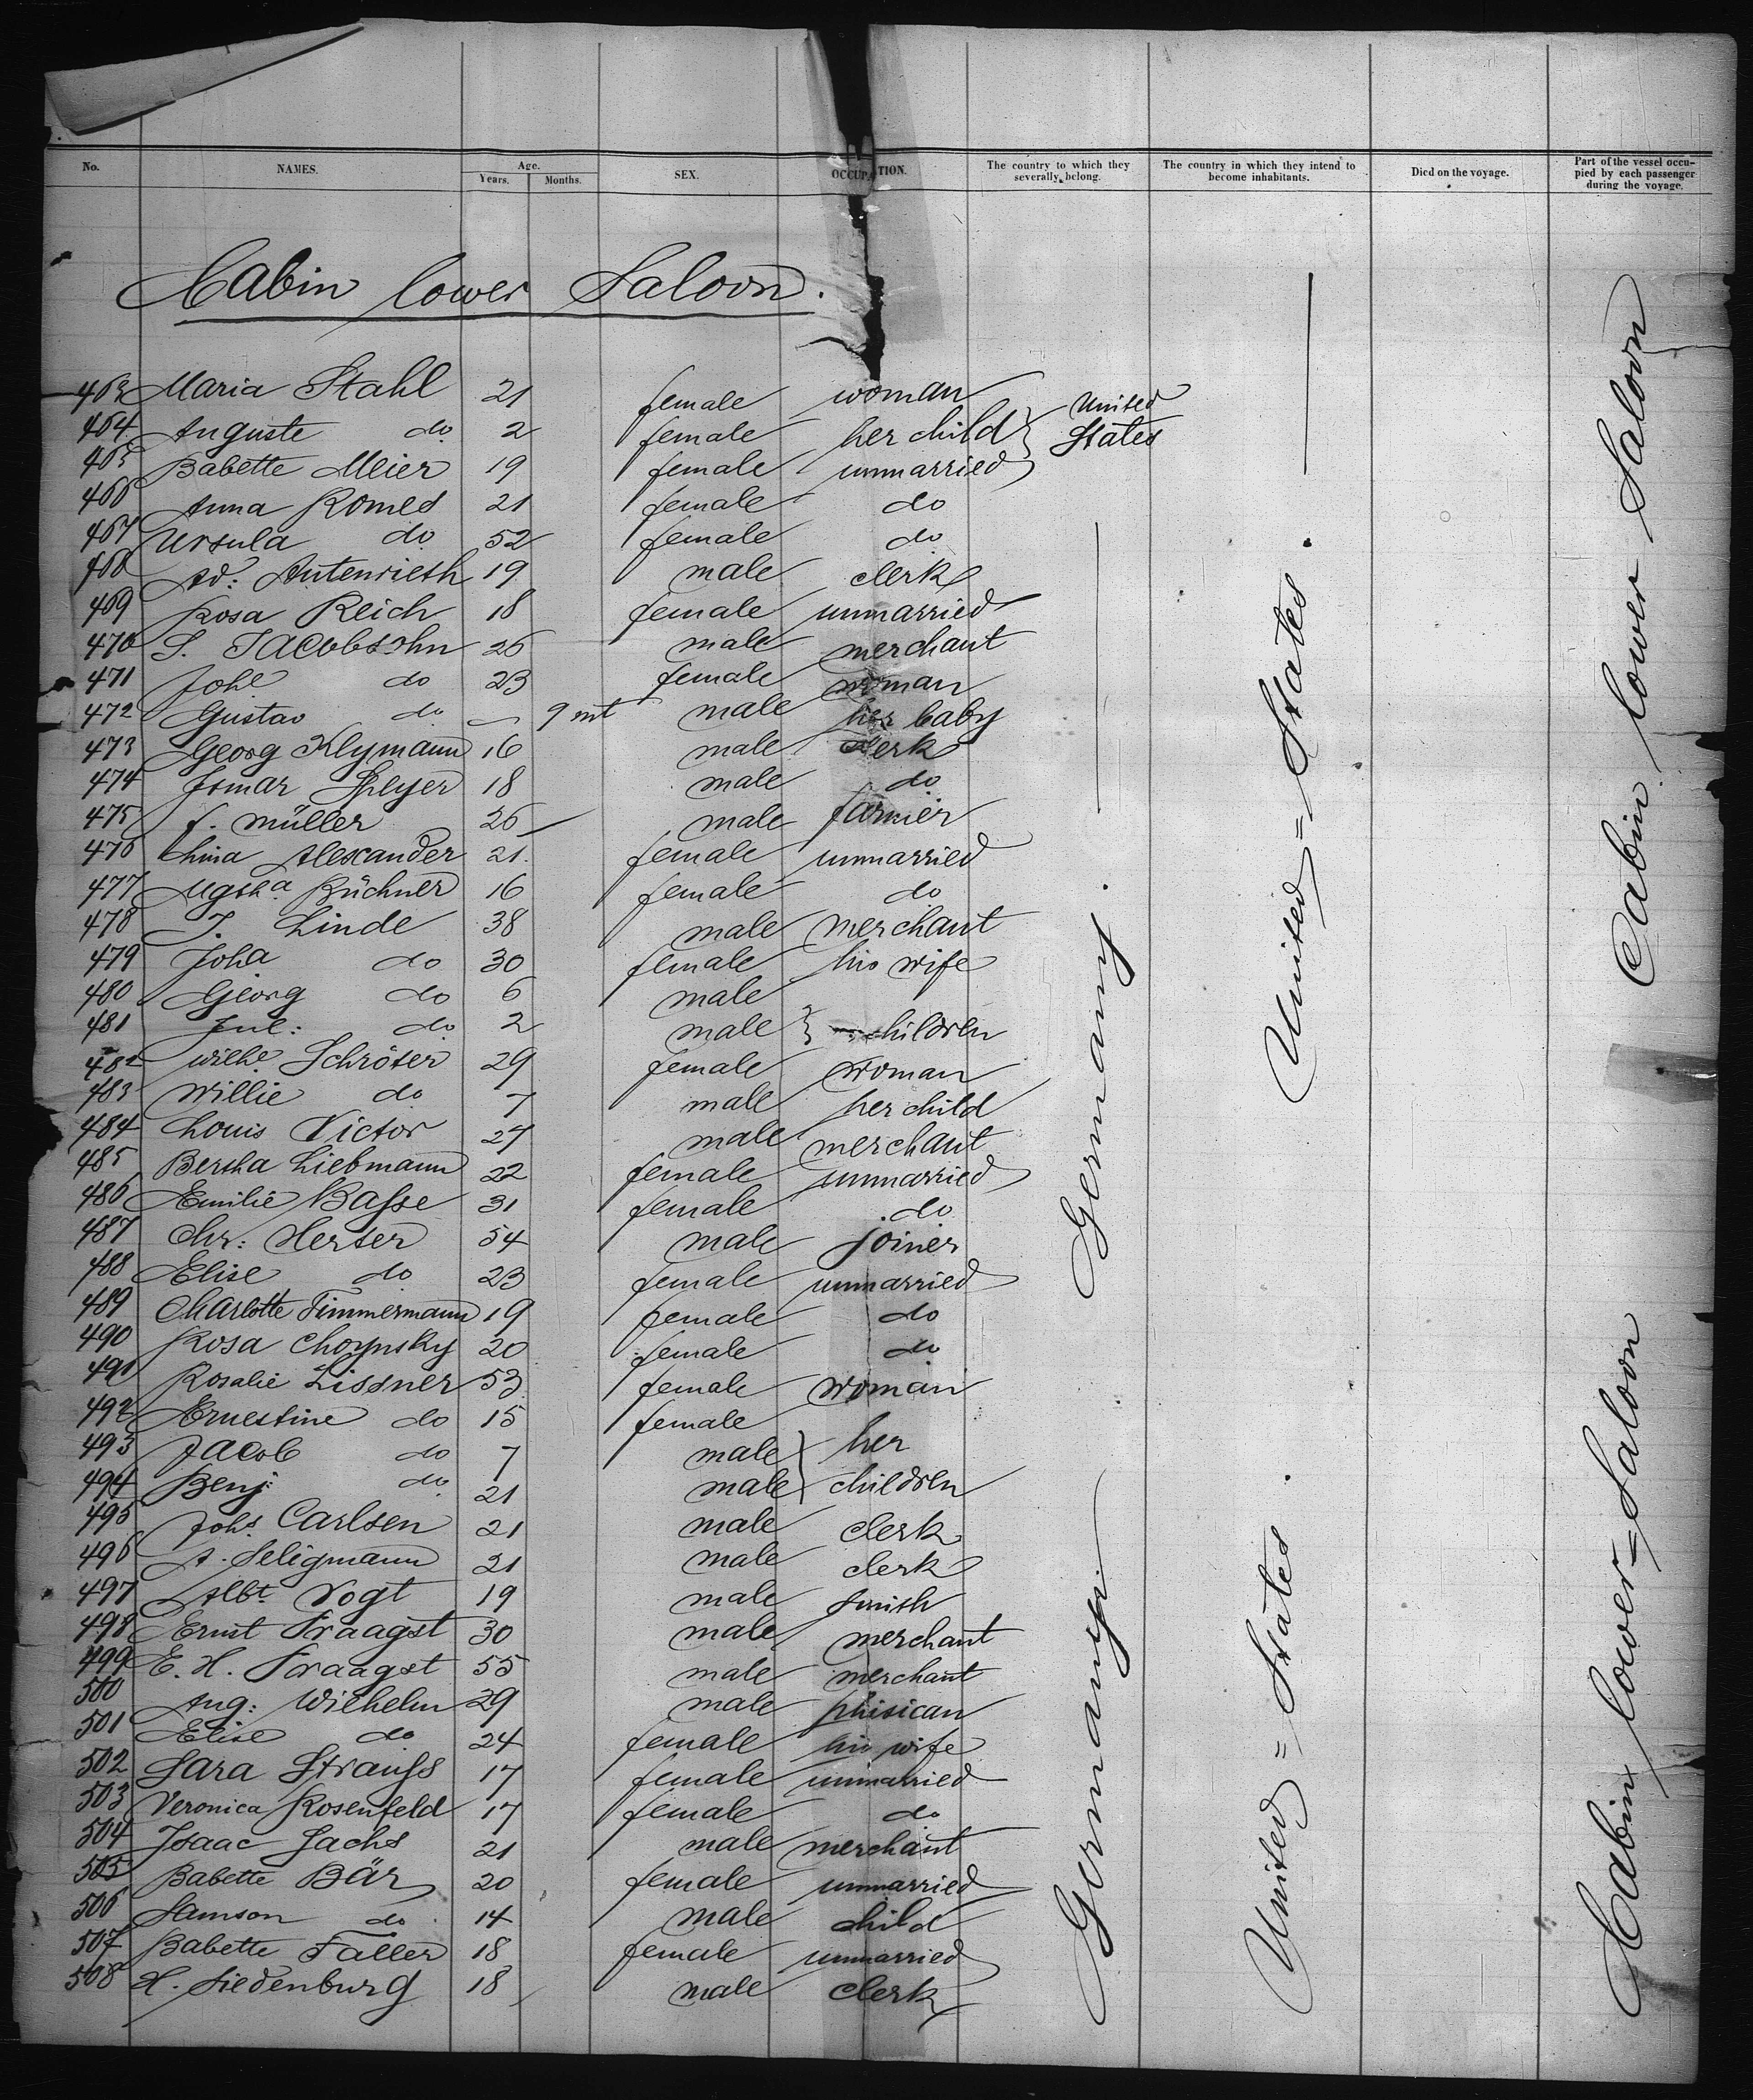 No. NAMES. Age. Years. Months. SEX. OCCUPATION. The country to which they severally belong. The country in which they intend to become inhabitants. Died on the voyage. Part of the vessel occupied by each passenger during the voyage.
Cabin lower Saloon.
463 Maria Stahl 21 female woman
464 Auguste do 2 female her child } United States
465 Babette Meier 19 female unmarried
466 Anna Romed 21 female do
467 Ursula do 52 female do
468 Ad: Autenrieth 19 male clerk
469 Rosa Reich 18 female unmarried
470 S. Jacobsohn 26 male merchant
471 Johe do 23 female woman
472 Gustav do — 9 mt male her baby
473 Georg Klymann 16 male clerk
474 Ismar Speyer 18 male do
475 f. müller 26 male farmer
476 Lina Alexander 21. female unmarried
477 Mgtha Büchner 16 female do
478 J. Linde 38 male merchant
479 Joha do 30 female his wife
480 Georg do 6 male
481 Jul: do 2 male } children
482 Wilhe Schröter 29 female woman
483 Willie do 7 male her child
484 Louis Victor 27 male merchant
485 Bertha Liebmann 22 female unmarried
486 Emilie Basse 31 female do
487 Chr: Herter 54 male joiner
488 Elise do 23 female unmarried
489 Charlotte Timmermann 19 female do
490 Rosa Choynsky 20 female do
491 Rosalie Lissner 53 female woman
492 Ernestine do 15 female
493 Jacob do 7 male } her
494 Benj: do 21 male children
495 Johs Carlsen 21 male clerk
496 A. Seligmann 21 male clerk
497 Albt Vogt 19 male smith
498 Ernst Traagst 30 male merchant
499 E. H. Traagst 55 male merchant
500 Aug: Wilhelm 29 male phisican
501 Elise do 24 female his wife
502 Sara Strauss 17 female unmarried
503 Veronica Rosenfeld 17 female do
504 Isaac Sachs 21 male merchant
505 Babette Bär 20 female unmarried
506 Samson do 14 male child
507 Babette Faller 18 female unmarried
508 H. Siedenburg 18 male clerk
Germany.
Germany
United = States.
United = States.
Cabin lower Saloon
Cabin lower = Saloon